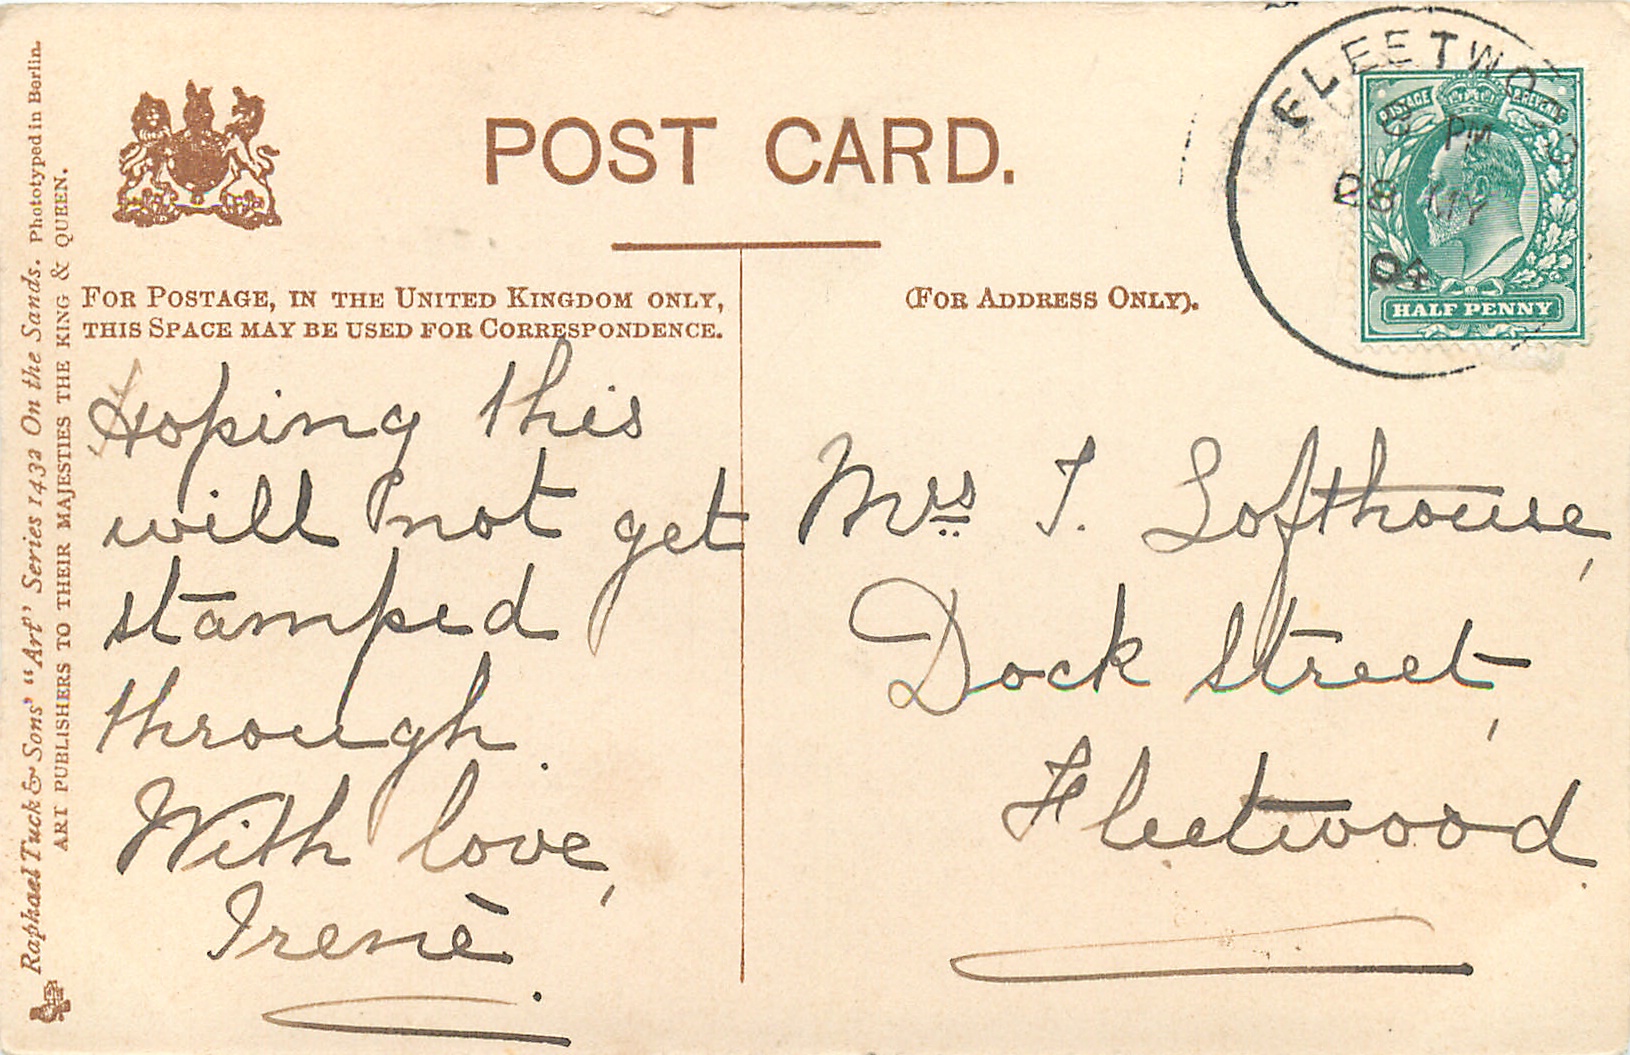 POST CARD.
FOR POSTAGE, IN THE UNITED KINGDOM ONLY,
THIS SPACE MAY BE USED FOR CORRESPONDENCE.
(FOR ADDRESS ONLY).
Hoping this
will not get
stamped
through.
With love,
Irenè.
Mrs T. Lofthouse,
Dock Street,
Fleetwood.
FLEETWO
PM
28 MY
POSTAGE & REVENUE
HALF PENNY
Raphael Tuck & Sons' "Art" Series 1432 On the Sands. Phototyped in Berlin.
ART PUBLISHERS TO THEIR MAJESTIES THE KING & QUEEN.